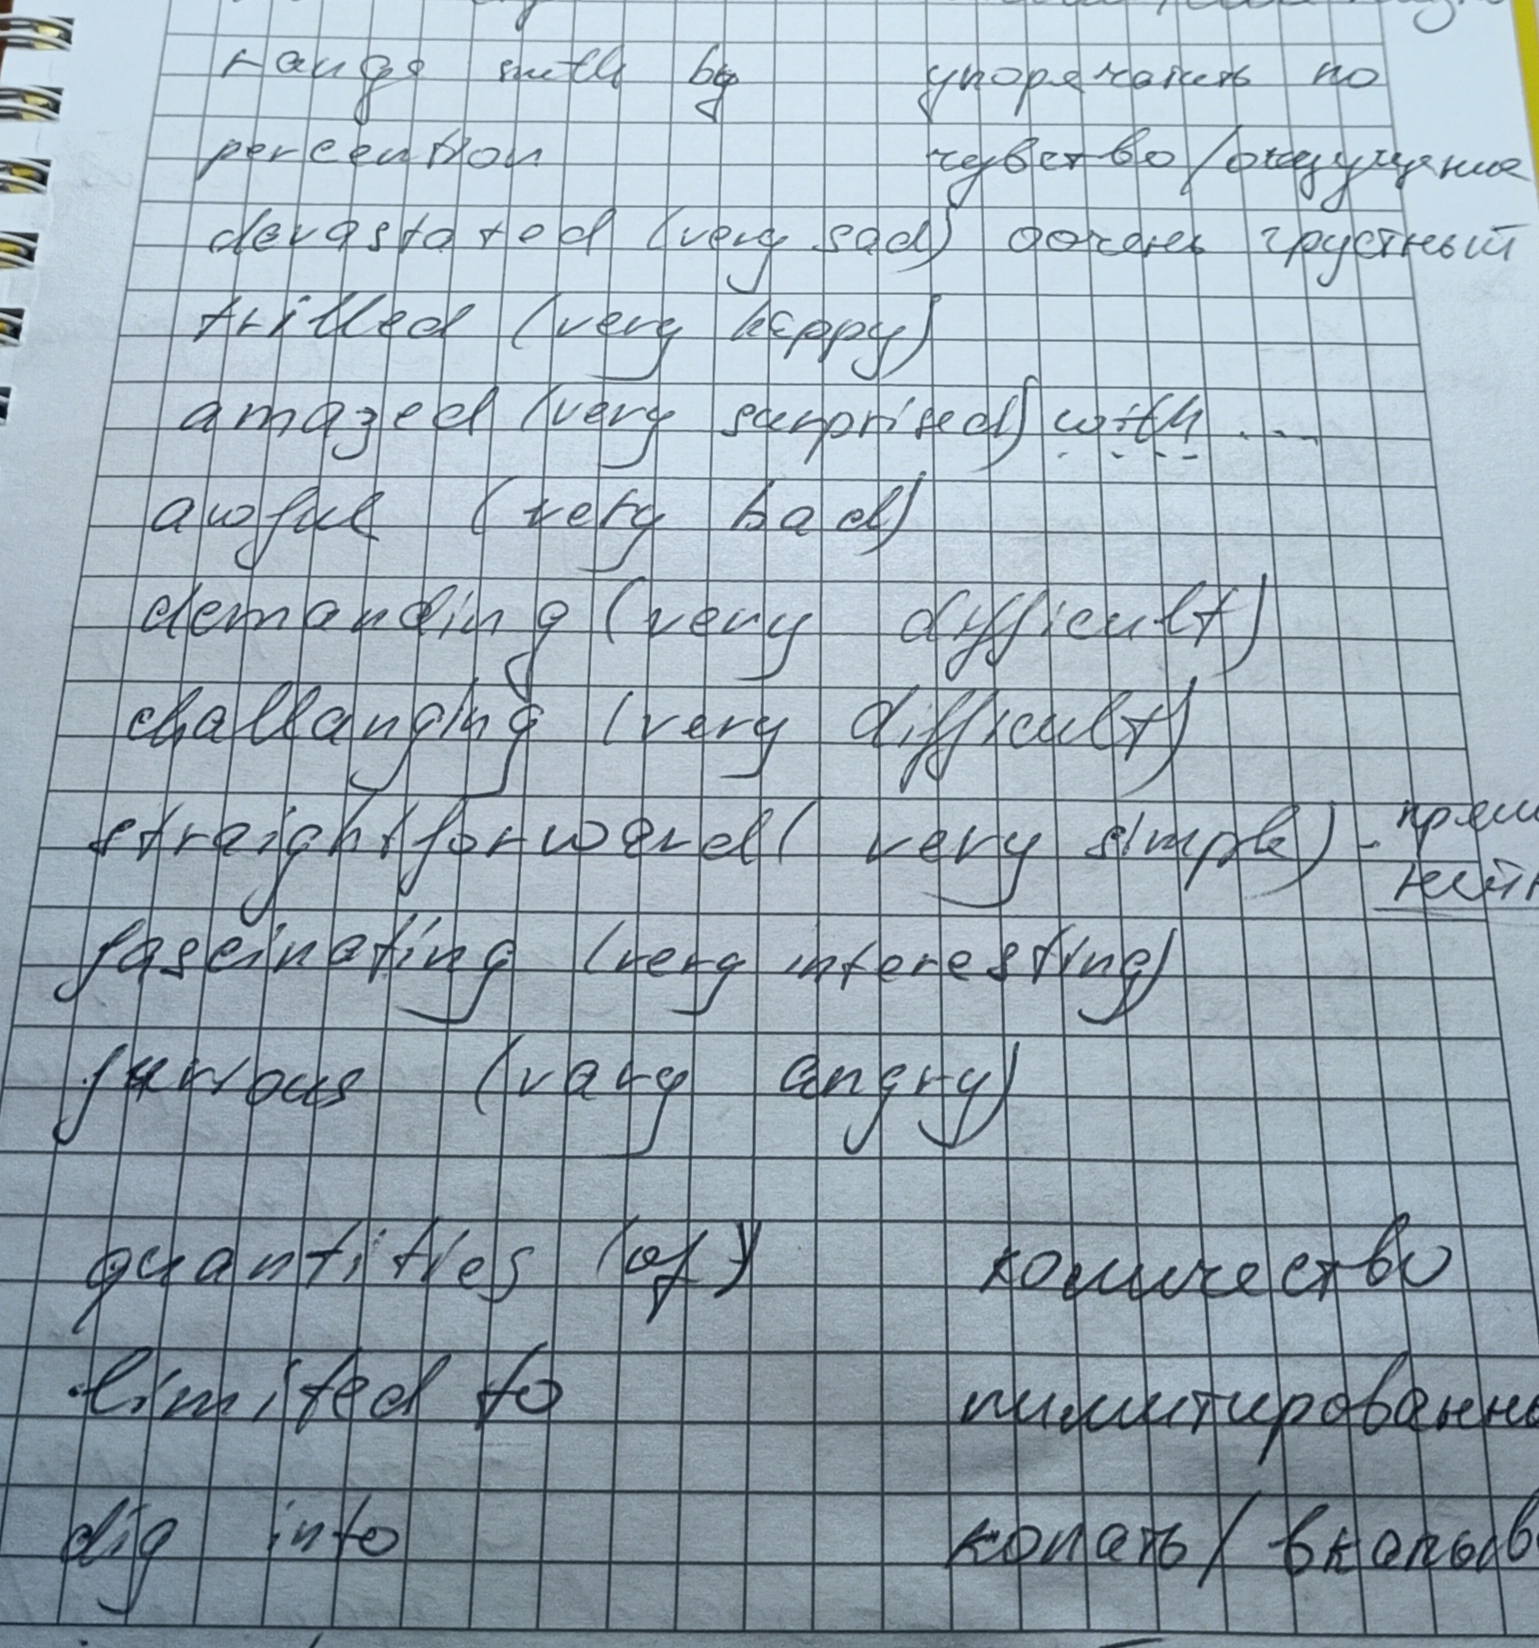 range smth by упорядочить по
percention чувство/ощущение
devastated (very sad) оочень грустный
trilled (very happy)
amazed (very surprised) with ....
awful (very bad)
demanding (very difficult)
challanging (very difficult)
straightforward (very simple) - прям
fascinating (very interesting)
furious (vary angry)
quantities (of) количество
limited to лимитированн
dig into копать/вкапыв